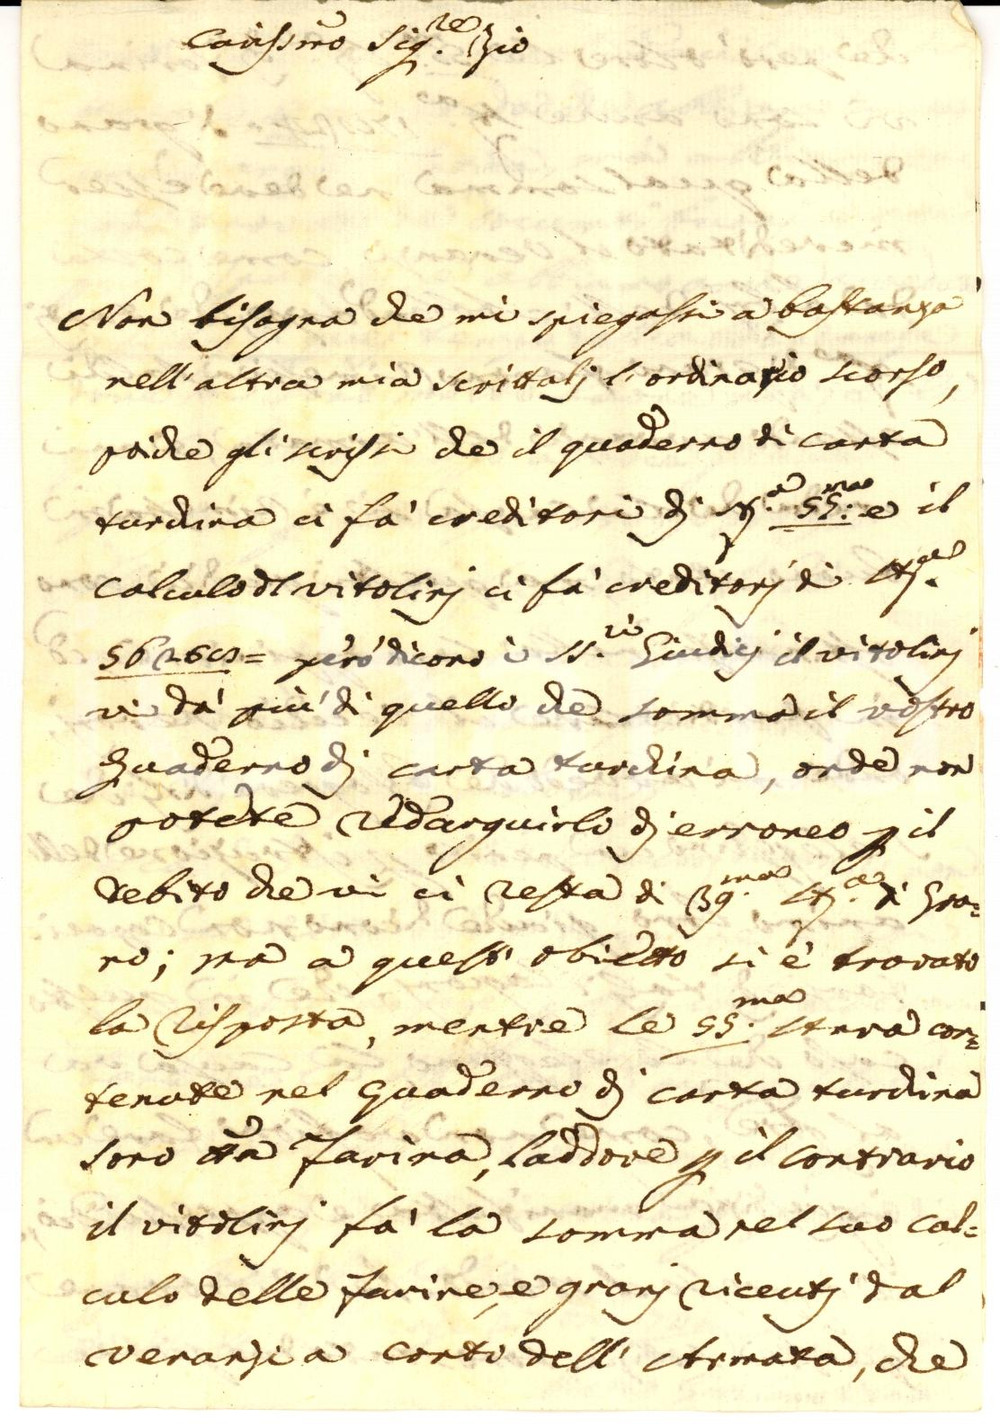 Carissmo Sig.re Zio
Non bisogna che mi spiegassi a bastanza
nell'altra mia scrittalj l'ordinario scorso,
poiche gli scrissi che il quaderno di carta
turchina ci fà creditori dj 55:me e il
calculo dl vitolinj ci fà creditorj di
però dicono i SS.ri Giudicj il vitolinj
vi dà più di quello che somma il vostro
Quaderno dj carta turchina, onde non
potete redarguirlo dj erroneo p il
debito che vi ci resta di 39.ma di Gra=
no; ma a quest' obietto si è trovato
la risposta, mentre le 55.ma con=
tenute nel quaderno dj carta turchina
sono tta Farina, laddove p il contrario
il vitolinj fà la somma nel suo cal=
culo delle farine, e granj ricevutj dal
veranzi a conto dell' Armata, che